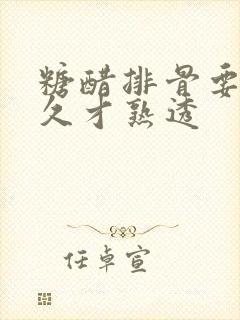 糖醋排骨要
久才熟透
任卓宣